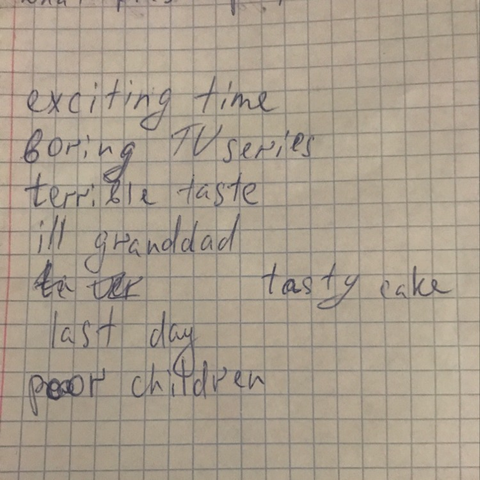 exciting time
boring TV series
terrible taste
ill granddad
tasty cake
last day
poor children